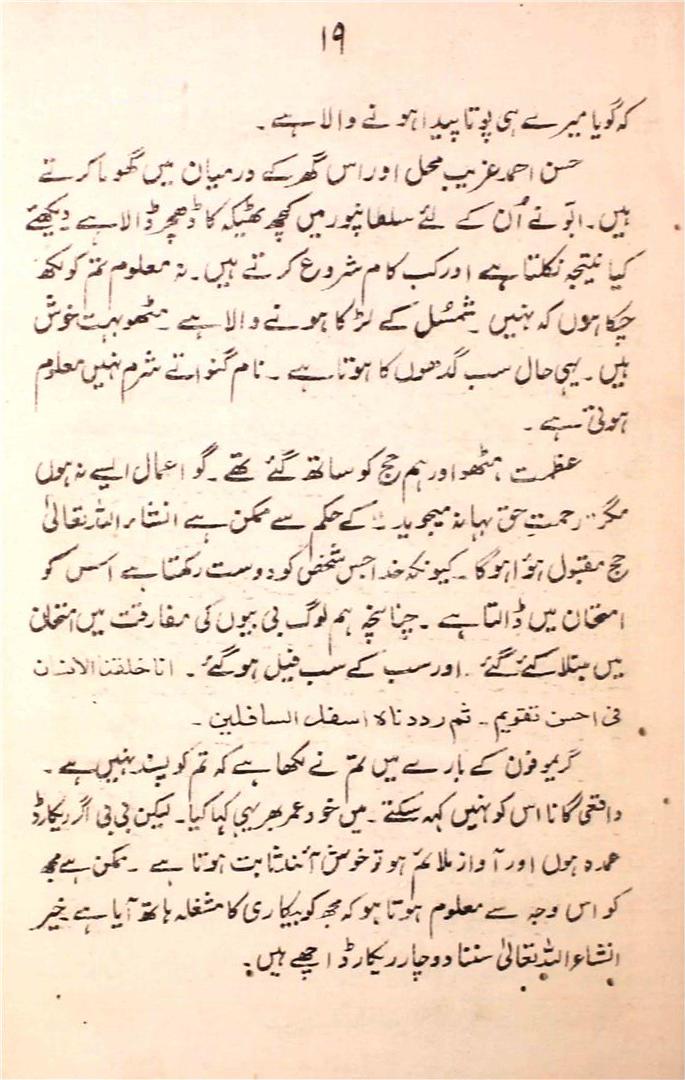 ۱۹
کہ گویا میرے ہی پوتا پیدا ہونے والا ہے۔
حسن احمد غریب محل اور اس گھر کے درمیان میں گھوما کرتے
ہیں۔ ابّو نے اُن کے لئے سلطانپور میں کچھ ٹھیکہ کا ڈھچر ڈالا ہے دیکھئے
کیا نتیجہ نکلتا ہے اور کب کام شروع کرتے ہیں۔ نہ معلوم تم کو لکھ
چکا ہوں کہ نہیں۔ شمشل کے لڑکا ہونے والا ہے۔ مٹھو بہت خوش
ہیں۔ یہی حال سب گدھوں کا ہوتا ہے۔ نام گنواتے شرم نہیں معلوم
ہوتی ہے۔
عظمت مٹھو اور ہم حج کو ساتھ گئے تھے۔ گو اعمال ایسے نہ ہوں
مگر رحمتِ حق بہانہ میجوید۔ کے حکم سے ممکن ہے انشاء اللہ تعالیٰ
حج مقبول ہوا ہوگا۔ کیونکہ خدا جس شخص کو دوست رکھتا ہے اس کو
امتحان میں ڈالتا ہے۔ چنانچہ ہم لوگ بی بیوں کی مفارقت میں امتحان
میں مبتلا کئے گئے۔ اور سب کے سب فیل ہو گئے۔ انا خلقنا الانسان
فی احسن تقویم۔ ثم رددناہ اسفل السافلین۔
گریموفون کے بارے میں تم نے لکھا ہے کہ تم کو پسند نہیں ہے۔
واقعی گانا اس کو نہیں کہہ سکتے۔ میں خود عمر بھر یہی کہا کیا۔ لیکن بی بی اگر ریکارڈ
عمدہ ہوں اور آواز ملائم ہو تو خوش آئند ثابت ہوتا ہے۔ ممکن ہے مجھ
کو اس وجہ سے معلوم ہوتا ہو کہ مجھ کو بیکاری کا مشغلہ ہاتھ آیا ہے خیر
انشاء اللہ تعالیٰ سننا دو چار ریکارڈ اچھے ہیں۔